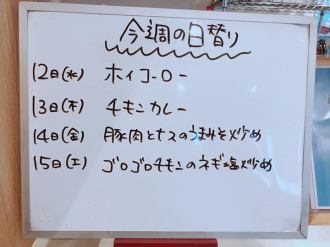 今週の日替り
12日(水) ホイコーロー
13日(木) チキンカレー
14日(金) 豚肉とナスのうまみそ炒め
15日(土) ゴロゴロチキンのネギ塩炒め